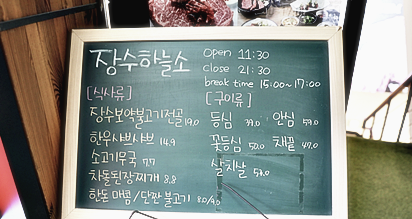 장수하늘소
Open 11:30
close 21:30
break time 15:00~17:00
[식사류]
장수보약불고기전골 19.0
한우샤브샤브 14.9
소고기무국 7.7
차돌된장찌개 8.8
한돈 매콤/단짠 불고기 8.0/9.0
[구이류]
등심 39.0 안심 59.0
꽃등심 50.0 채끝 47.0
살치살 59.0